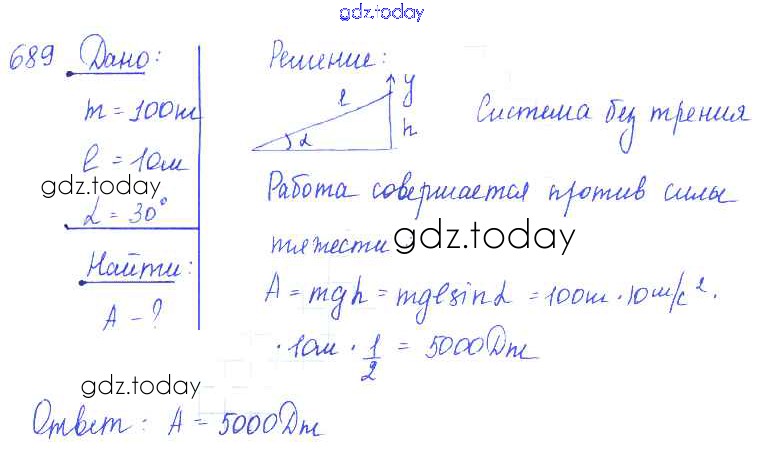 gdz.today
689 Дано:
m = 100т
l = 10м
gdz.today
α = 30°
Найти:
A - ?
Решение:
l
y
h
α
Система без трения
Работа совершается против силы
тяжести
gdz.today
A = mgh = mglsinα = 100т · 10м/с².
· 10м · 1/2 = 5000Дж
gdz.today
Ответ: A = 5000Дж